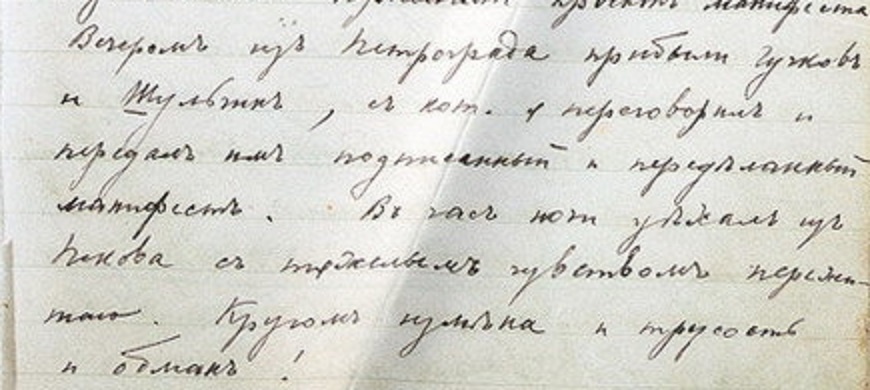 проектъ манифеста
Вечеромъ изъ Петрограда прибыли Гучковъ
и Шульгинъ, съ кот. я переговорилъ и
передалъ имъ подписанный и передѣланный
манифестъ. Въ часъ ночи уѣхалъ изъ
Пскова съ тяжелымъ чувствомъ пережи-
таго. Кругомъ измѣна и трусость
и обманъ!